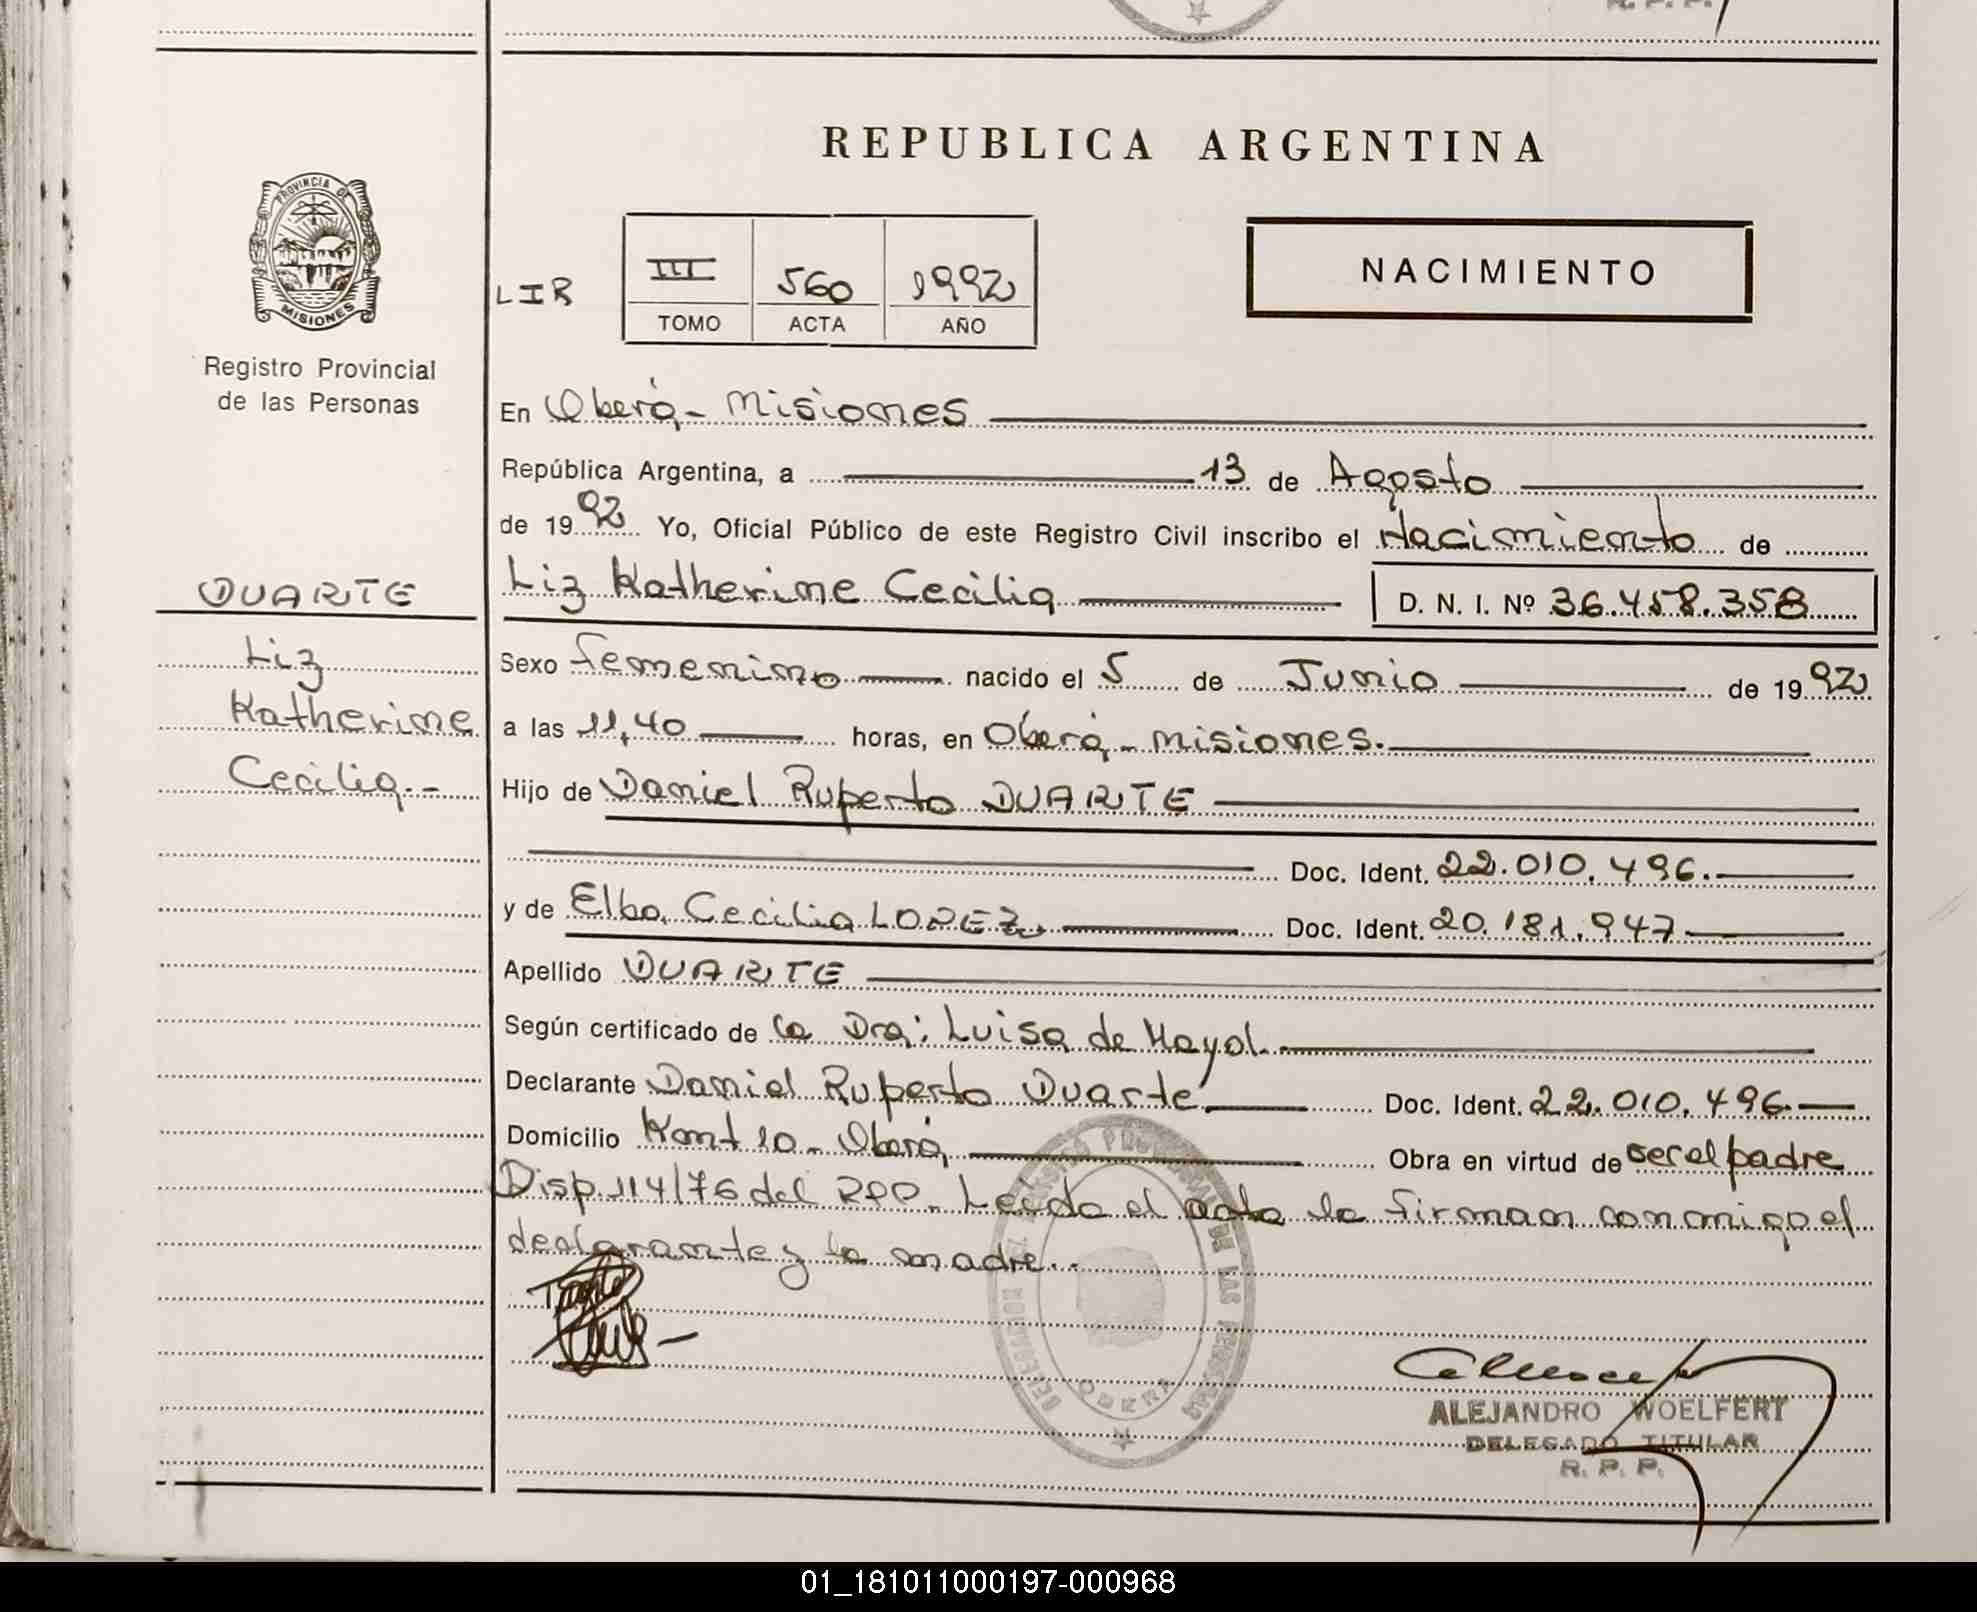 R. P. P.
REPUBLICA ARGENTINA
PROVINCIA DE
MISIONES
Registro Provincial
de las Personas
LIR
III 560 1992
TOMO ACTA AÑO
NACIMIENTO
En Oberá - Misiones
República Argentina, a 13 de Agosto
de 1992 Yo, Oficial Público de este Registro Civil inscribo el Nacimiento de
DUARTE
Liz Katherine Cecilia D. N. I. Nº 36.458.358
Liz
Katherine
Cecilia.-
Sexo femenino nacido el 5 de Junio de 1992
a las 11,40 horas, en Oberá - Misiones.
Hijo de Daniel Ruperto DUARTE
Doc. Ident. 22.010.496.
y de Elba Cecilia LOPEZ Doc. Ident. 20.181.947
Apellido DUARTE
Según certificado de la Dra: Luisa de Mayol.
Declarante Daniel Ruperto Duarte Doc. Ident. 22.010.496.
Domicilio Km 10 - Oberá, Obra en virtud de ser el padre
Disp. 114/76 del RPP. Leída el acta la firman conmigo el
declarante y la madre.
REGISTRO PROVINCIAL DE LAS PERSONAS
OBERA
ALEJANDRO WOELFERT
DELEGADO TITULAR
R. P. P.
01_181011000197-000968